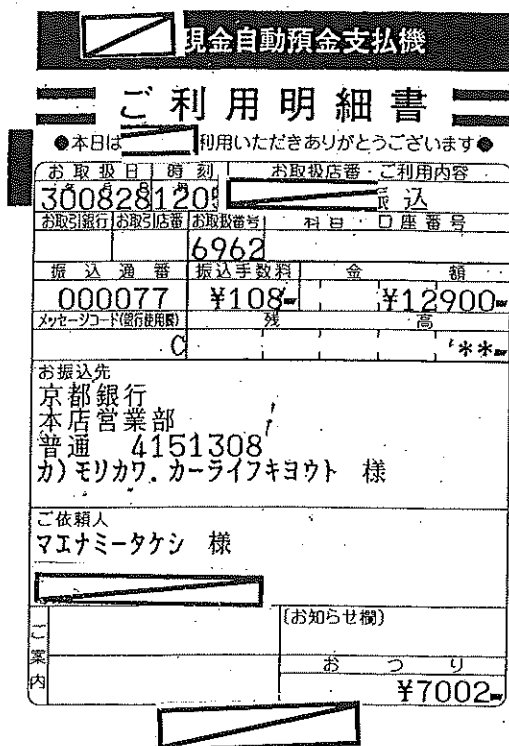 現金自動預金支払機
ご利用明細書
●本日は 利用いただきありがとうございます●
お取扱日 時刻 お取扱店番・ご利用内容
300828 1205 振込
お取引銀行 お取引店番 お取扱番号 科目・口座番号
6962
振込通番 振込手数料 金額
000077 ¥108 ¥12900
メッセージコード(銀行使用欄) 残高
C **
お振込先
京都銀行
本店営業部
普通 4151308
カ)モリカワ.カーライフキヨウト 様
ご依頼人
マエナミータケシ 様
ご案内
(お知らせ欄)
おつり
¥7002